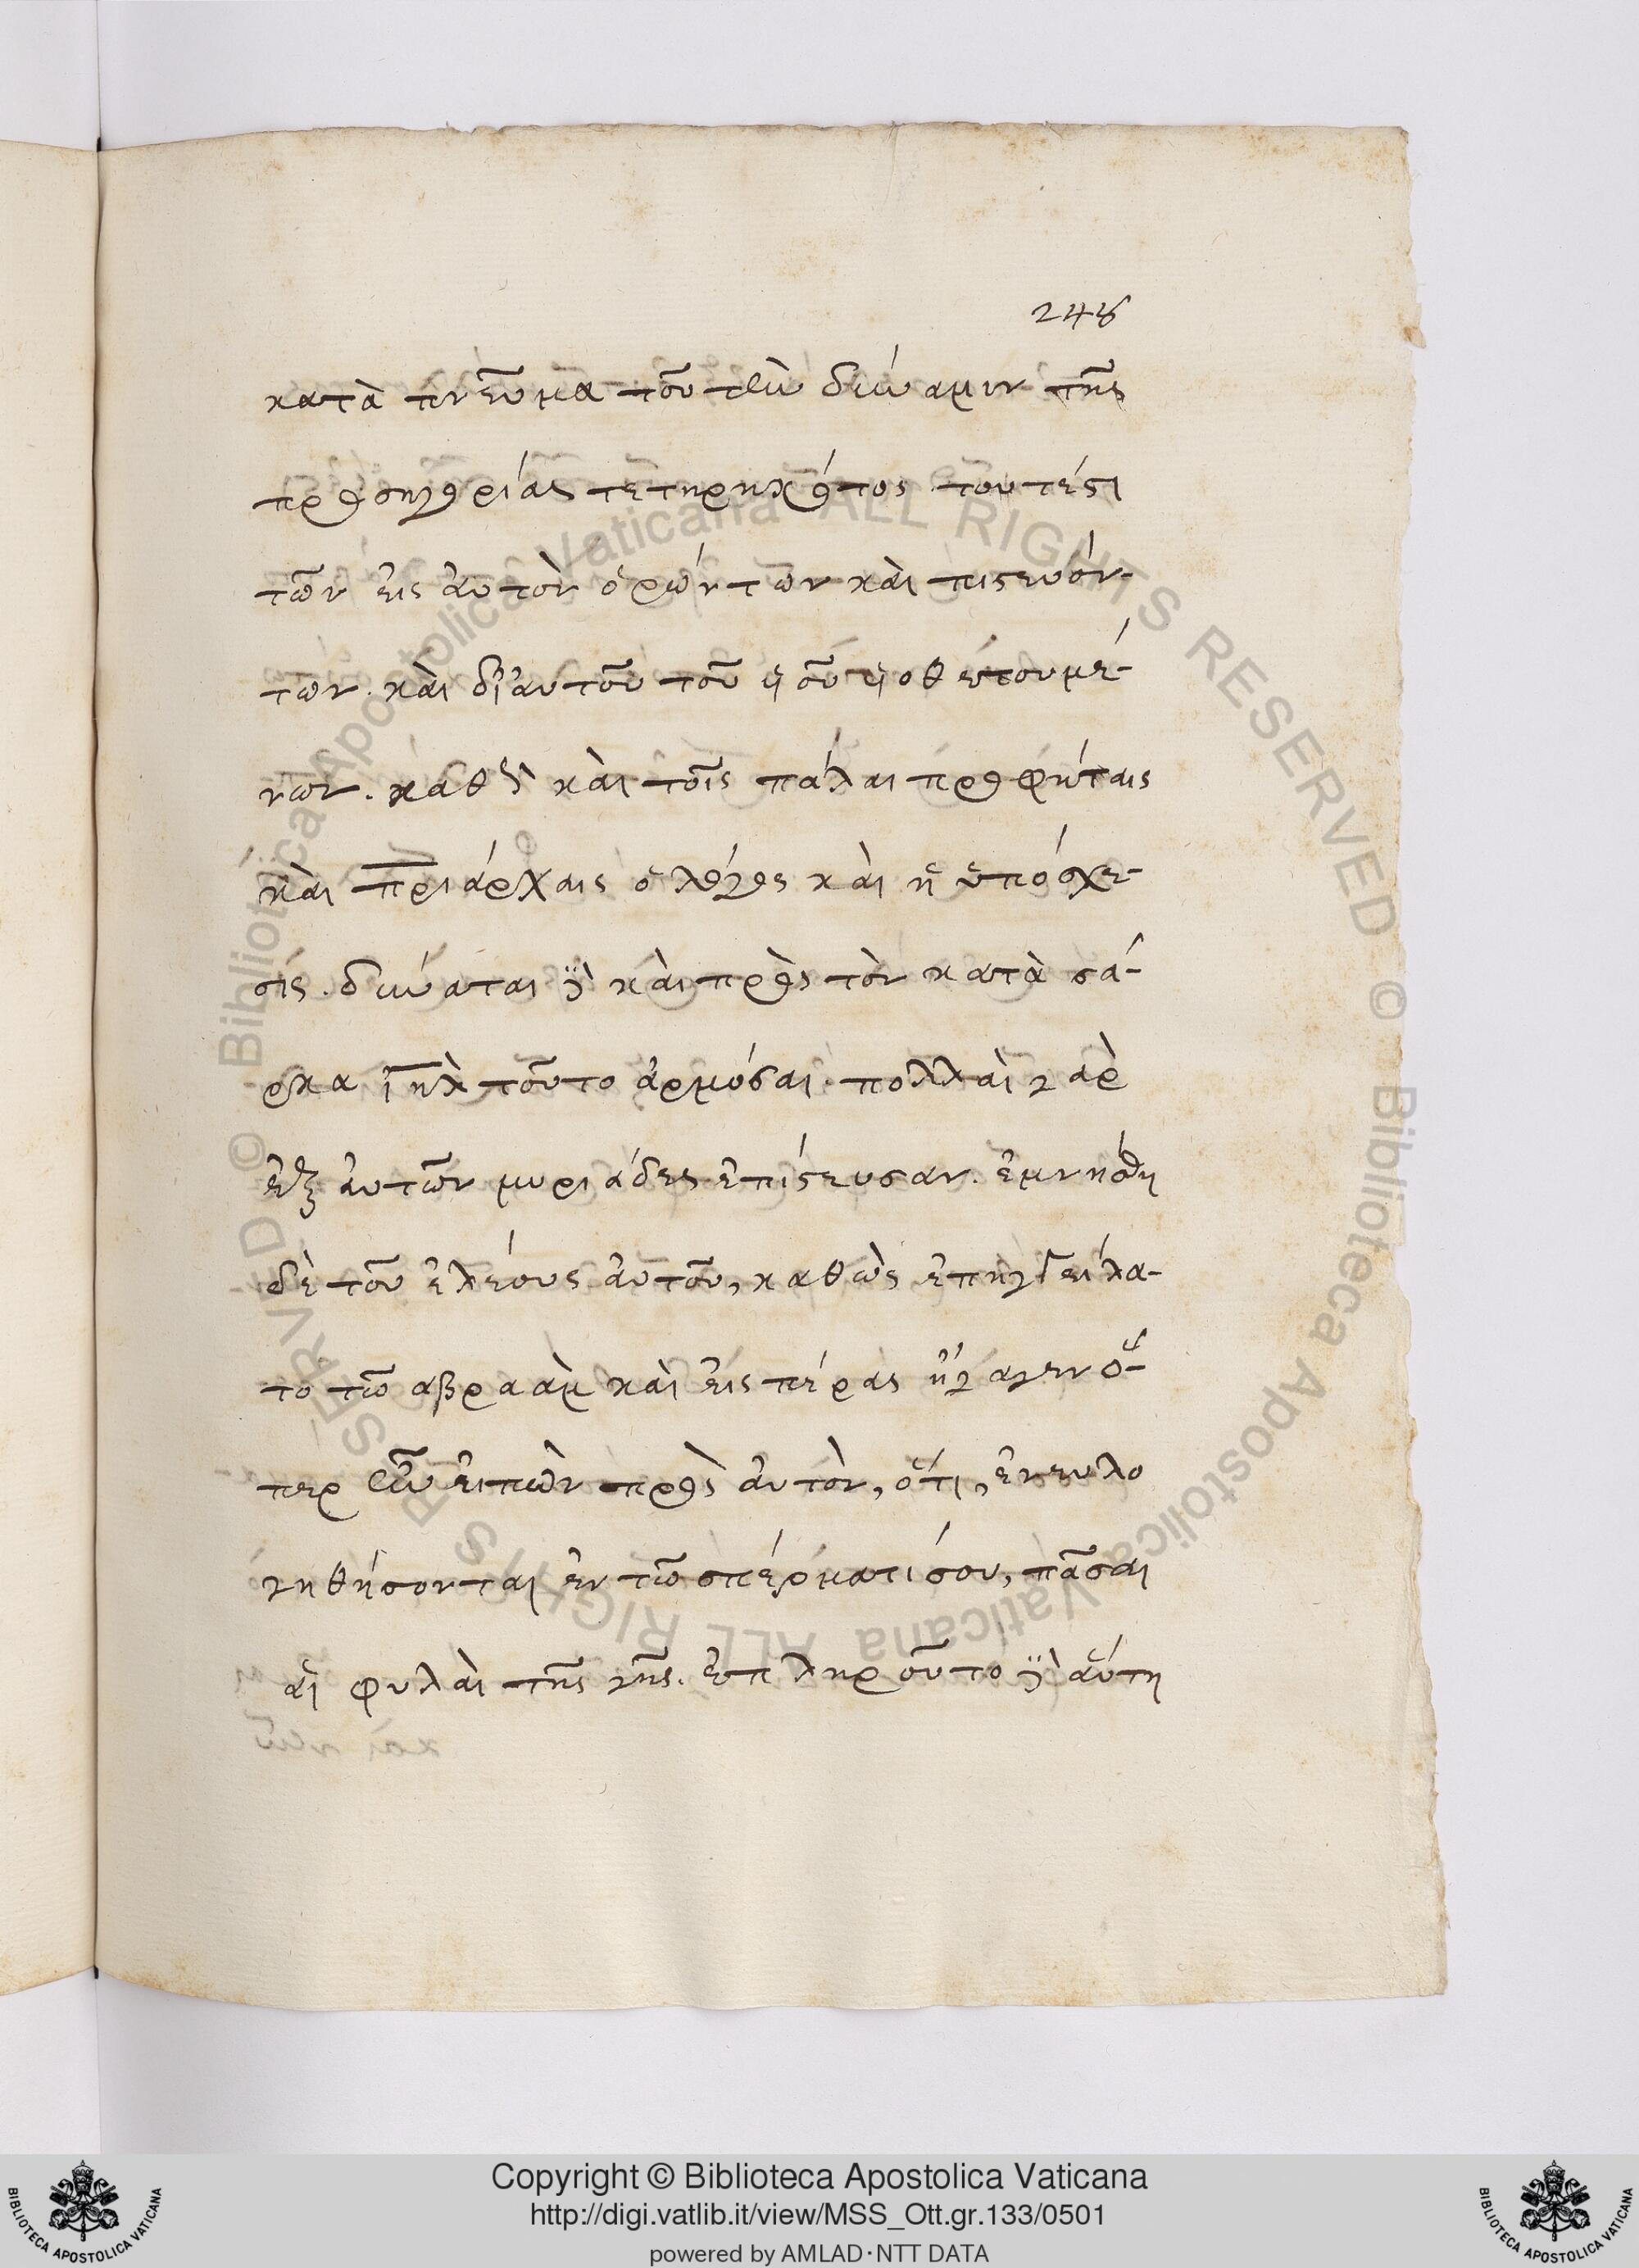 248
κατὰ πνεῦμα τοῦ τὴν δύναμιν τῆς
προσηγορίας τετηρηκότος. τουτέστι
τῶν εἰς ἀυτὸν ὁρώντων κὰι πιστευόν-
των. κὰι δι' ἀυτοῦ τοῦ υἱοῦ υἱοθετουμέ-
νων. καθὰ κὰι τοῖς πάλαι προφήταις
κὰι πριάρχαις ὁ λόγος κὰι ἡ ὑπόσχε-
σις. δύναται δὲ κὰι πρὸς τὸν κατὰ σά-
ρκα ἰηλ τοῦτο ἁρμόσαι. πολλὰι γὰρ
ἐξ ἀυτῶν μυριάδες ἐπίστευσαν. ἐμνήσθη
δὲ τοῦ ἐλέους ἀυτοῦ, καθὼς ἐπηγγείλα-
το τῶ αβραὰμ κὰι ἐις πέρας ἤγαγεν ὅ-
περ ἦν ἐιπὼν πρὸς ἀυτὸν, ὅτι, ἐνευλο
γηθήσονται ἐν τῶ σπέρματί σου, πᾶσαι
αἱ φυλὰι τῆς γῆς. ἐπληροῦτο δὲ ἀύτη
Copyright © Biblioteca Apostolica Vaticana
http://digi.vatlib.it/view/MSS_Ott.gr.133/0501
powered by AMLAD·NTT DATA
BIBLIOTECA APOSTOLICA VATICANA
BIBLIOTECA APOSTOLICA VATICANA
© Biblioteca Apostolica Vaticana ALL RIGHTS RESERVED © Biblioteca Apostolica Vaticana ALL RIGHTS RESERVED